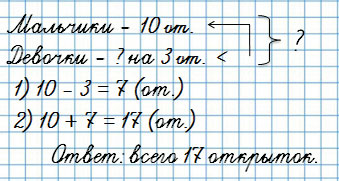 Мальчики – 10 от.
Девочки – ? на 3 от. < ?
1) 10 – 3 = 7 (от.)
2) 10 + 7 = 17 (от.)
Ответ: всего 17 открыток.